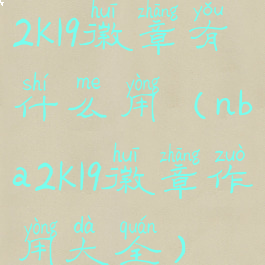 huī zhāng yǒu
2K19徽章有
shí me yòng
什么用（nb
huī zhāng zuò
a2K19徽章作
yòng dà quán
用大全）